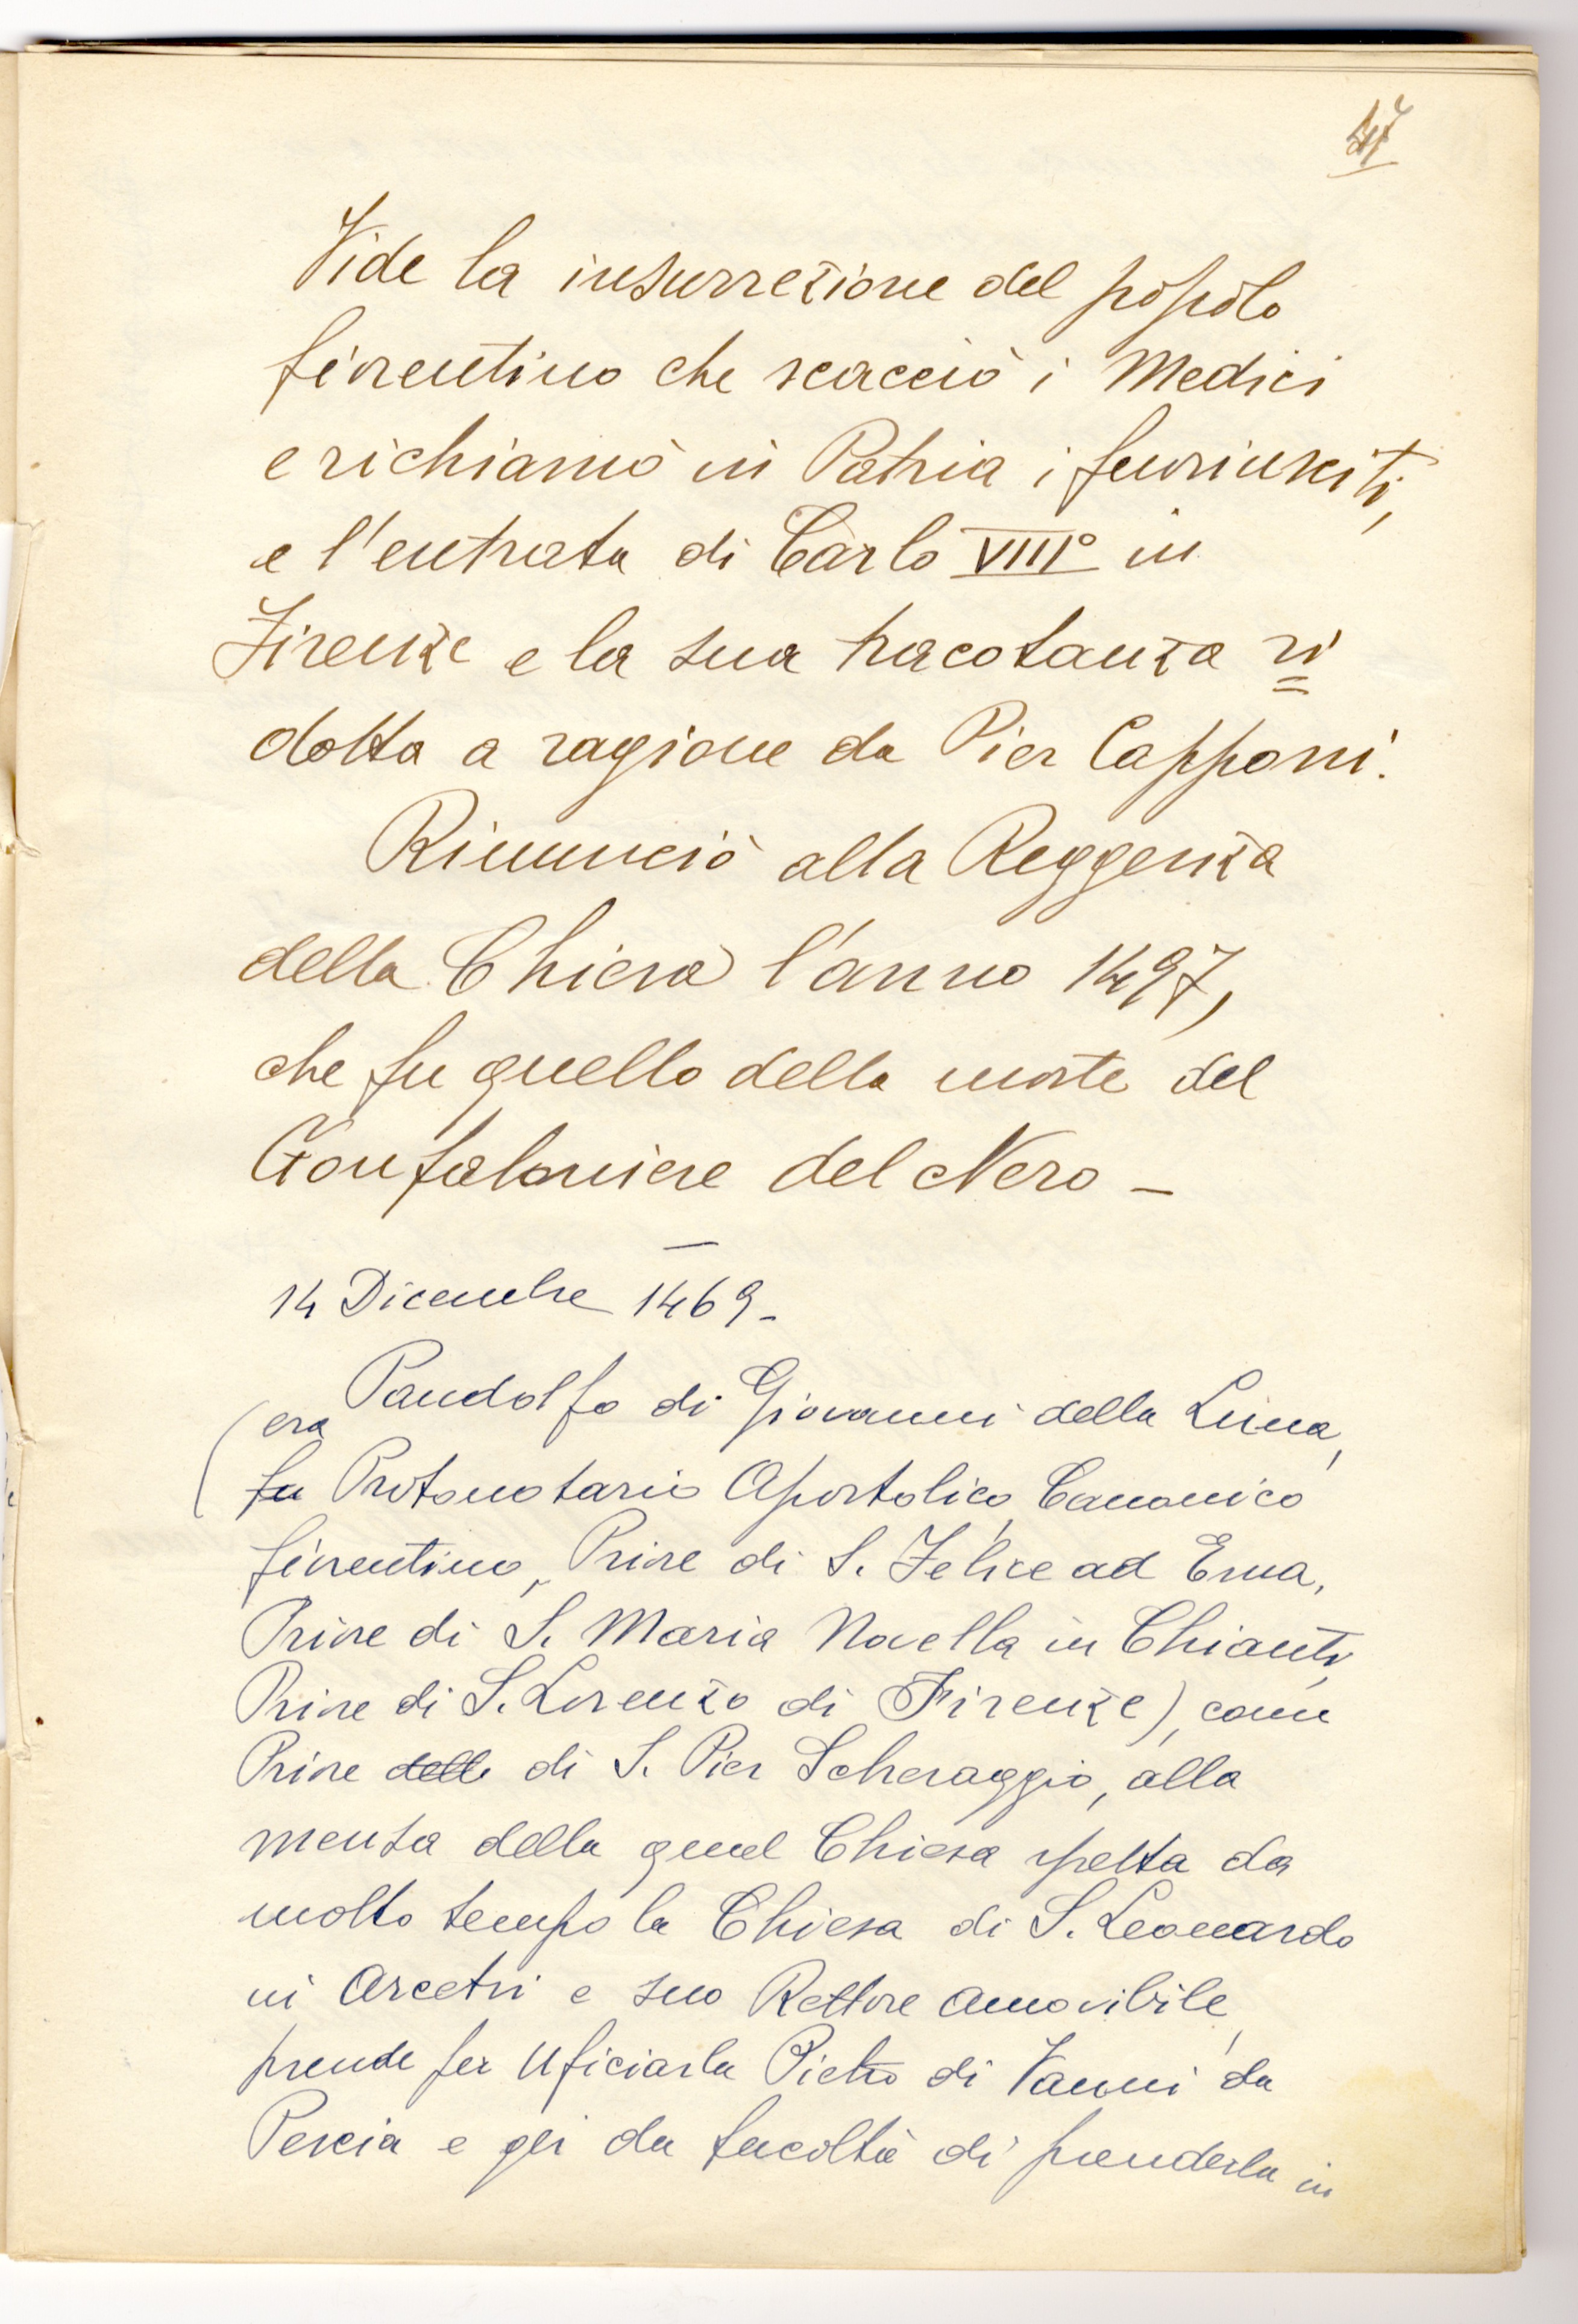 47
Vide la insurrezione del popolo
fiorentino che scacciò i Medici
e richiamò in Patria i fuoriusciti,
e l'entrata di Carlo VIII° in
Firenze e la sua tracotanza ri
dotta a ragione da Pier Capponi.
Rinunciò alla Reggenza
della Chiesa l'anno 1497,
che fu quello della morte del
Gonfaloniere del Nero -
14 Dicembre 1469 -
Pandolfo di Giovanni della Luna,
(era
fu Protonotario Apostolico, Canonico
fiorentino, Priore di S. Felice ad Ema,
Priore di S. Maria Novella in Chianti,
Priore di S. Lorenzo di Firenze), come
Priore delle di S. Pier Scheraggio, alla
mensa della qual Chiesa spetta da
molto tempo la Chiesa di S. Leonardo
in Arcetri e suo Rettore amovibile,
prende per Uficiarla Pietro di Vanni da
Pescia e gli da facoltà di prenderla in